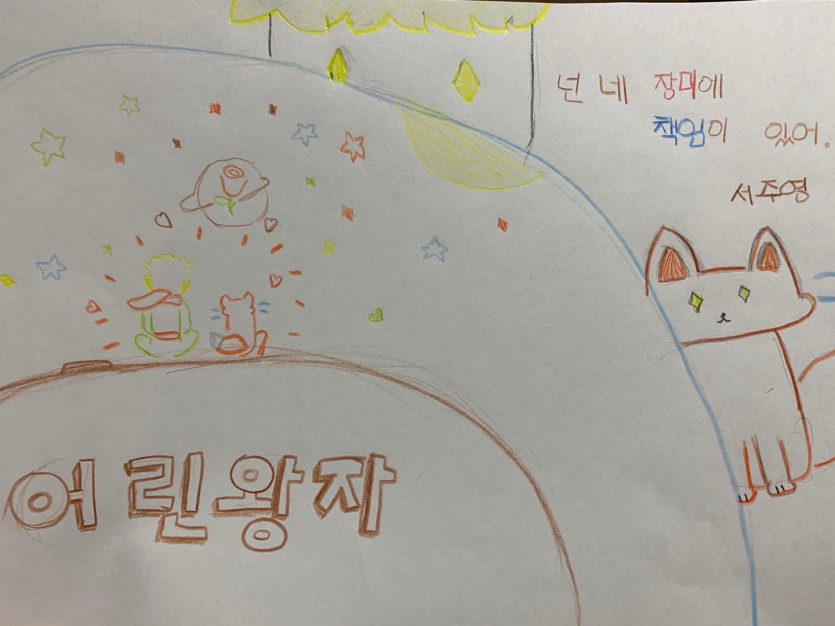 넌 네 장미에
책임이 있어.
서주영
어린왕자